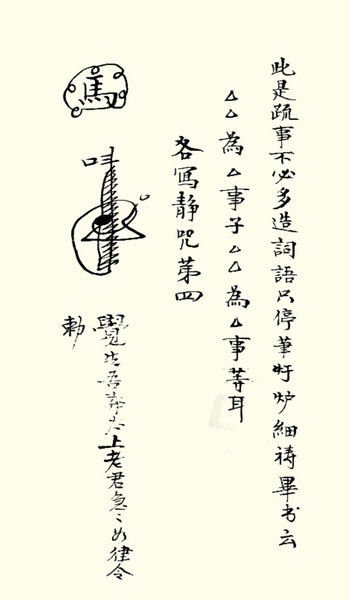 此是疏事不必多造詞語只停筆對炉細祷畢书云
△△為△事子△△為△事等耳
各寫静咒苐四
馬
吽
奉太上老君急〻如律令
勅